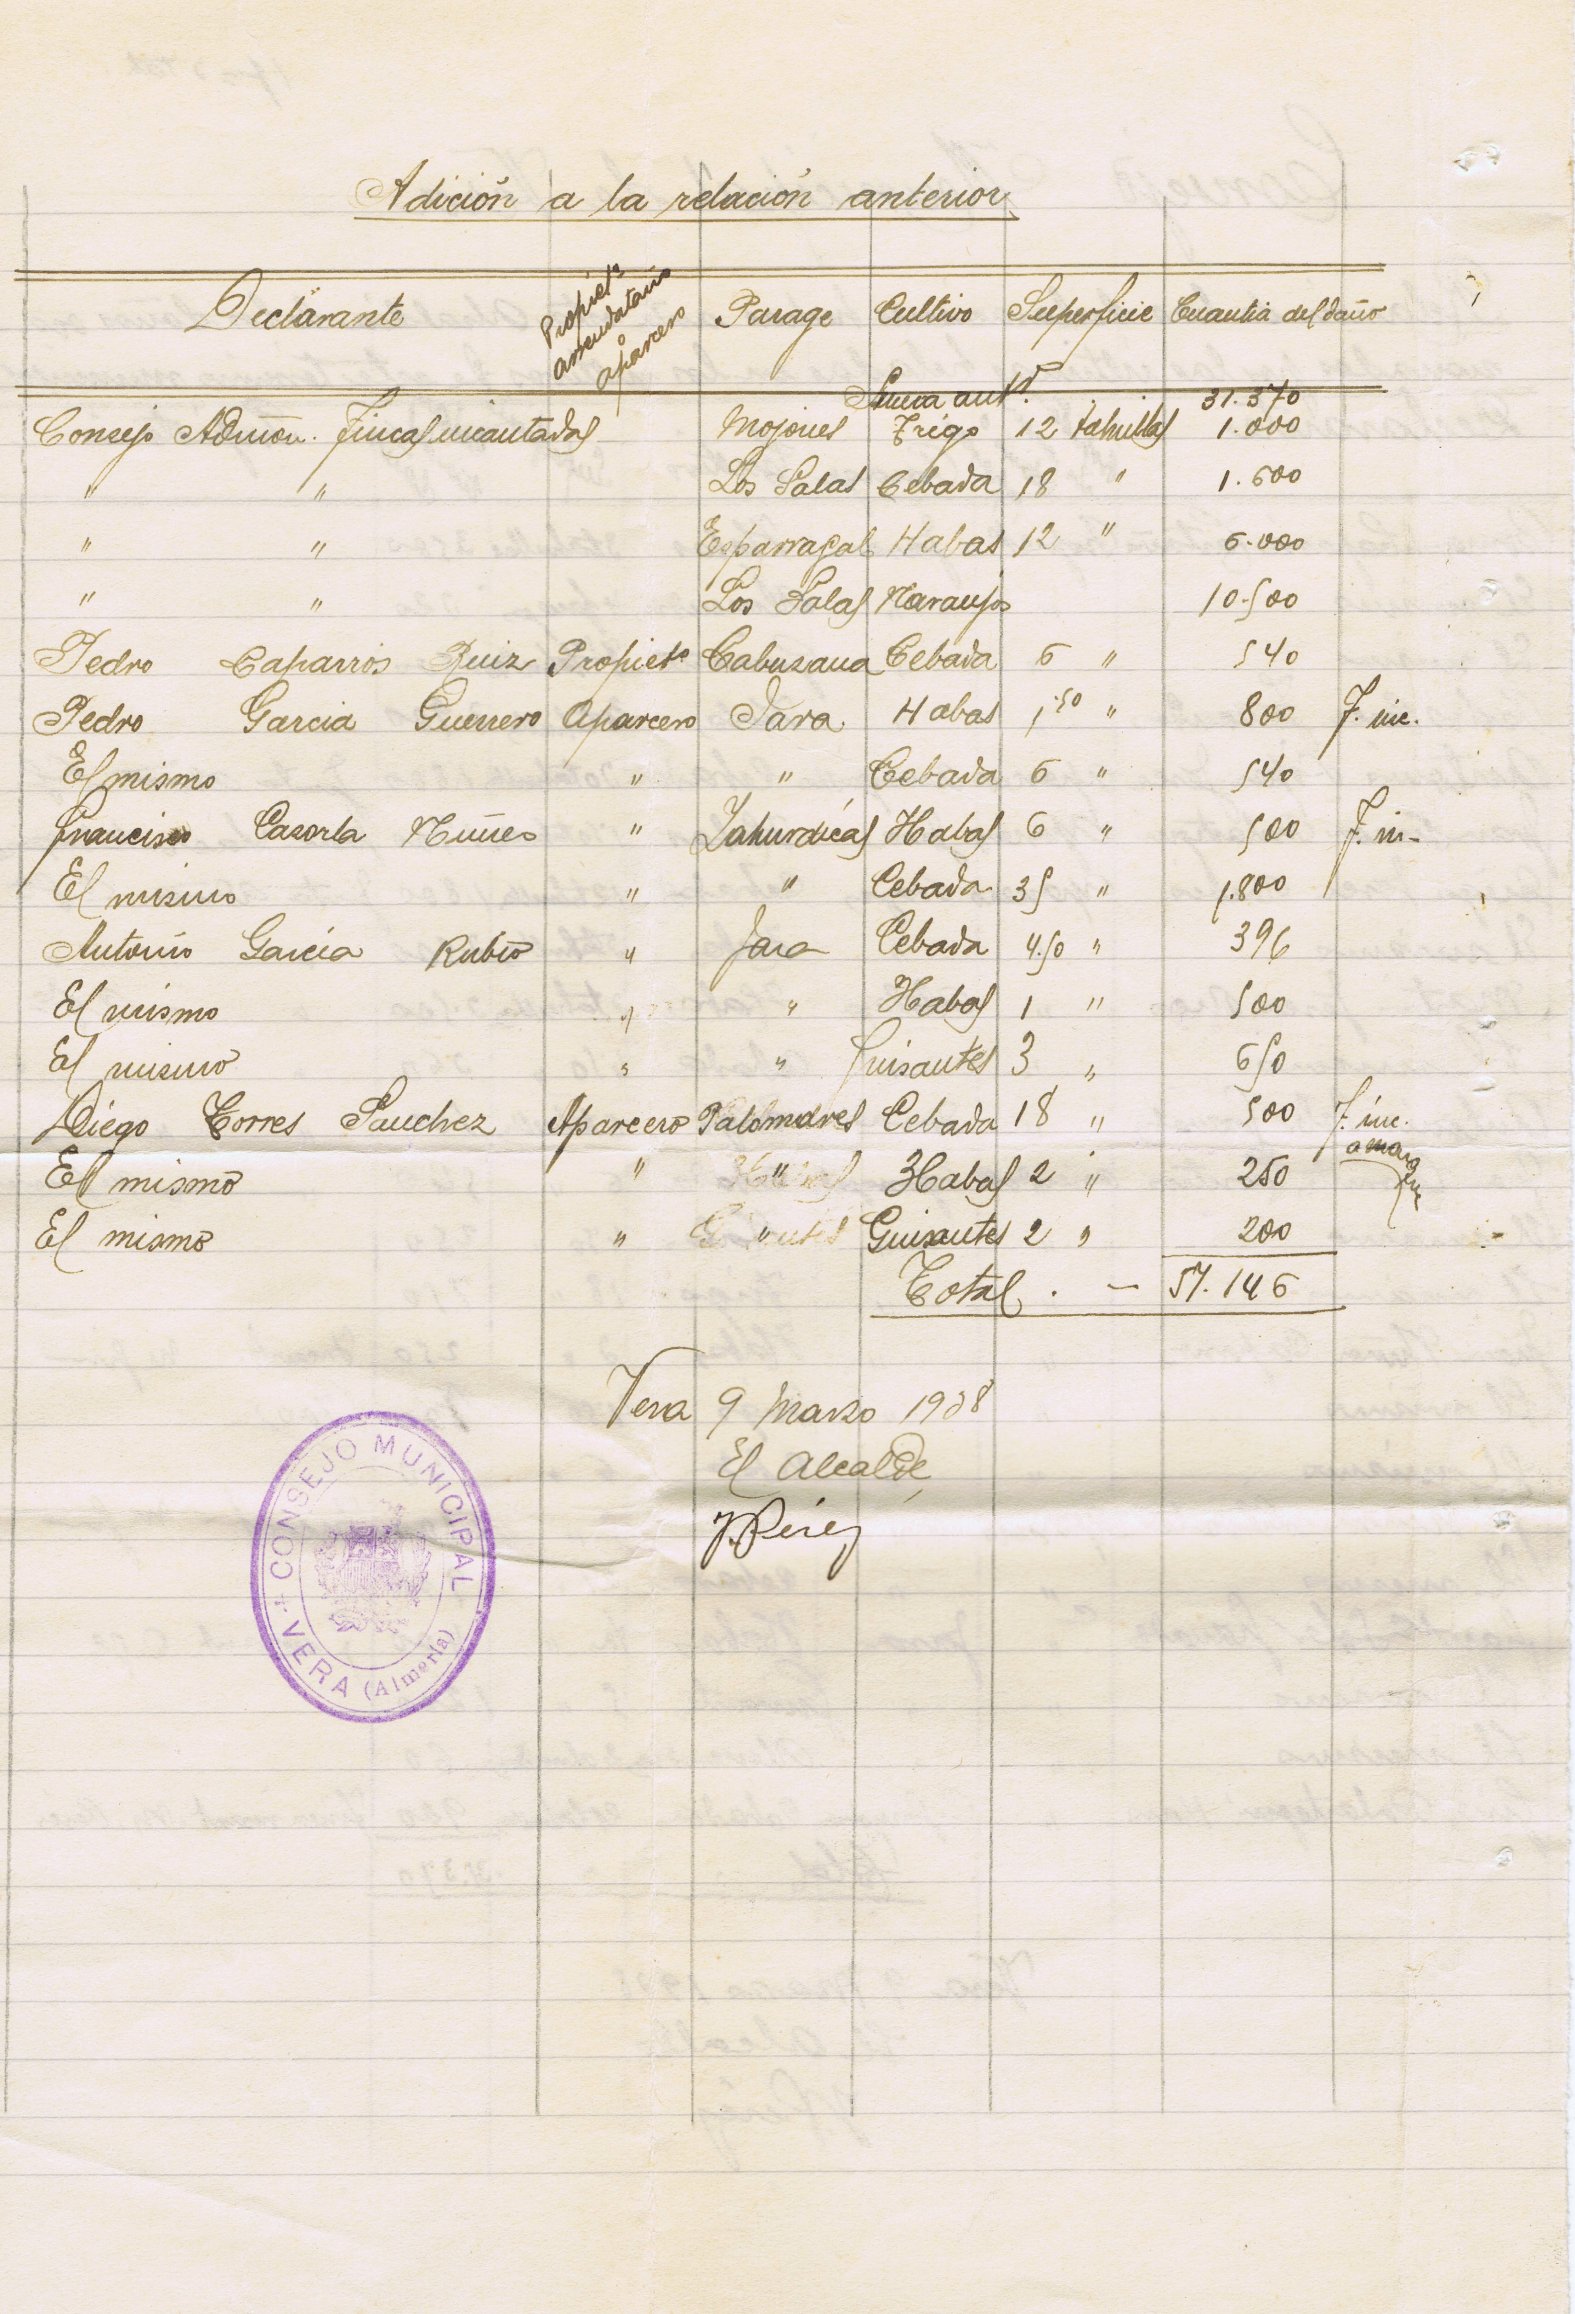 Adición a la relación anterior
Declarante Propietº arrendatario o aparcero Parage Cultivo Superficie Cuantia del daño
Suma antr. 31.370
Consejo Admon. Fincas incautadas Mojones Trigo 12 tahullas 1.000
" " Los Salas Cebada 18 " 1.600
" " Esparragal Habas 12 " 6.000
" " Los Salas Naranjos 10.500
Pedro Caparrós Ruiz Propietº Cabuzana Cebada 6 " 540
Pedro Garcia Guerrero Aparcero Jara Habas 1'50 " 800 F. inc.
El mismo " " Cebada 6 " 540
Francisco Casorla Nuñes " Zahurdicas Habas 6 " 500 F. in-
El mismo " " Cebada 35 " 1.800
Antonio García Rubio " Jara Cebada 4.50 " 396
El mismo " " Habas 1 " 500
El mismo " " Guisantes 3 " 650
Diego Torres Sanchez Aparcero Palomares Cebada 18 " 500 F. inc.
El mismo " " Habas 2 " 250
El mismo " " Guisantes 2 " 200
Total . - 57.146
Vera 9 Marzo 1938
El Alcalde
J. Pérez
CONSEJO MUNICIPAL
VERA (Almería)